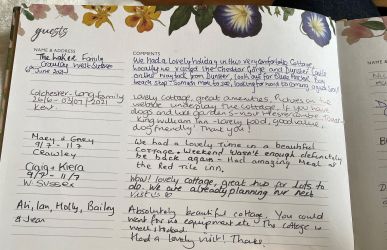 guests
NAME & ADDRESS
COMMENTS
NAME &
The Family
Crawley West Sussex
June 2021
We had a lovely holiday in this very comfortable cottage.
Locally we visited the Cheddar Gorge and Dunster Castle
on the way back from Dunster, look out for
Colchester - Long family
26/6 - 03/07/2021
Kent.
Lovely cottage, great amenities, Pictures on the
website underplay the cottage. If you have
dogs and like gardens visit
King William Inn - lovely food, good value,
dog friendly! Thank you!
Mary & Gary
9/7 - 11/7
Crawley
We had a lovely time in a beautiful
cottage. Weekend wasn't enough definitely
be back again - Had amazing meal at
the Red Tile Inn.
Craig & Kiera
9/7 - 11/7
W. Sussex
Wow! lovely cottage, great hub for lots to
do. We are already planning our next
visit
Ali, Ian, Holly, Bailey
Absolutely beautiful cottage. You could
want for no equipment etc. The cottage is
well
Had a lovely visit! Thanks